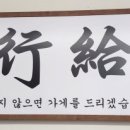 行給
지 않으면 가게를 드리겠습